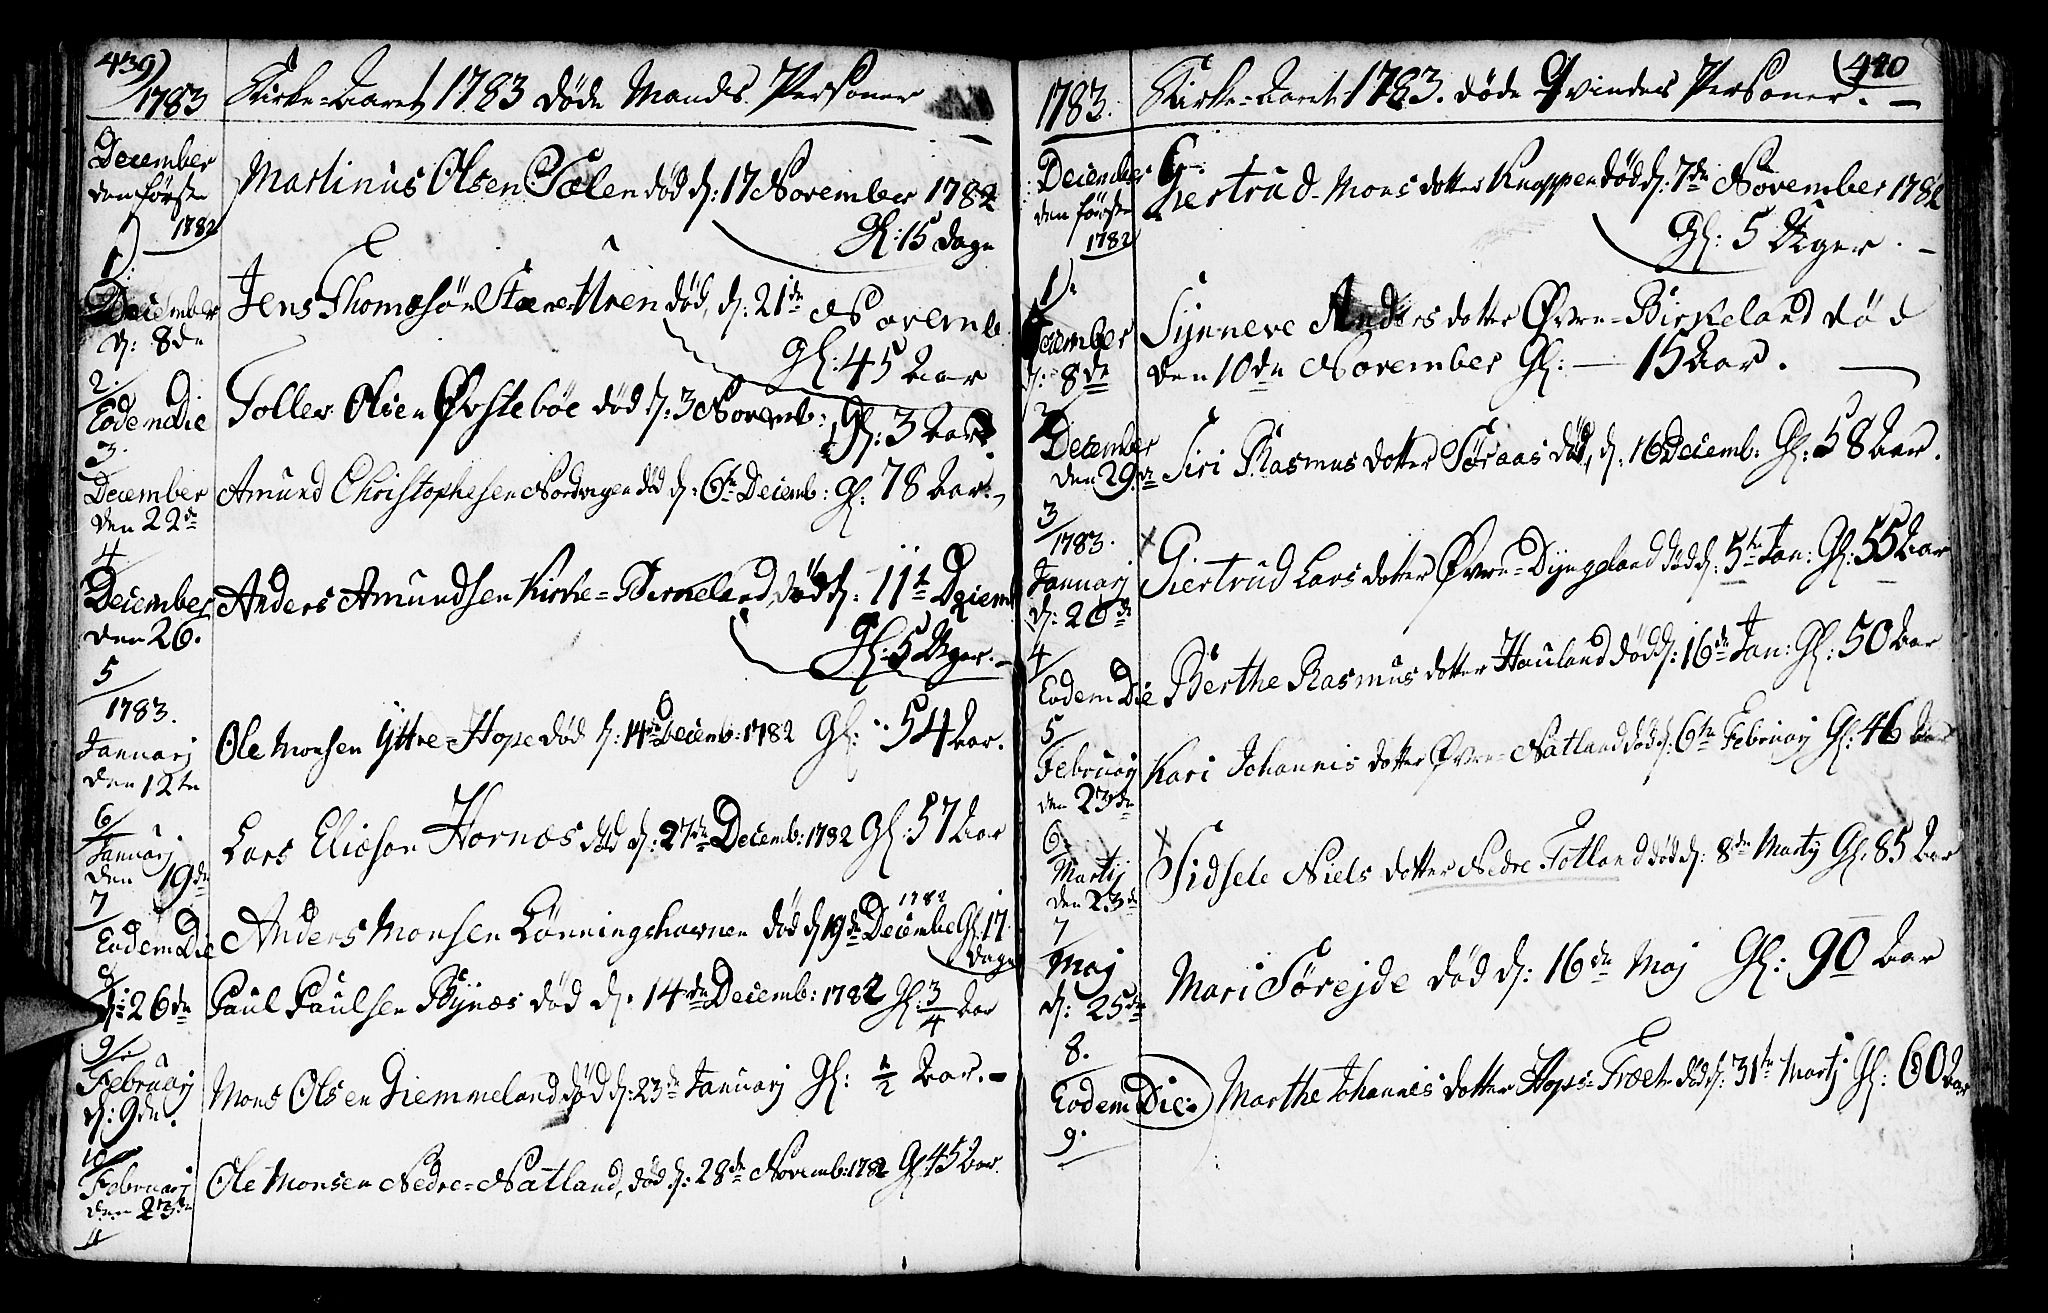 439)
1783
Kirke-Aaret 1783 døde Mands Personer
December
den første
1782
Martinus Olsen Sælen død d: 17 November 1782
Gl: 15 dage
1)
December
d: 8de
Jens Thomasøn Stære Uren død, d: 21de Novemb.
Gl: 45 Aar
2.
Eodem Die
Toller Olsen Øvstebøe død d: 3 Novemb: Gl: 3 Aar.
3.
December
den 22de
Amund Christophersen Nordvigen død d: 6te Decemb: Gl: 78 Aar.
4
December
den 26.
Anders Amundsen Kirke-Birkeland, død d: 11te Decemb
Gl: 5 Uger.
5
1783.
Januarj
den 12te
Ole Monsen Yttre-Hope død d: 14de Decemb: 1782 Gl: 54 Aar.
6
Januarj
den 19de
Lars Elieson Hornæs død d: 27de Decemb: 1782 Gl: 57 Aar
7
Eodem Die
1782
Anders Monsen Lønningshavnen død d 19de Decembe Gl. 17
dage
8
d: 26de
Paul Paulsen Bynæs død d. 14de Decemb: 1782 Gl: 3/4 Aar
9
Februarj
d: 9de.
Mons Olsen Giemmeland død d: 23de Januarj Gl: 1/2 Aar.
10
Februarj
den 23de
Ole Monsen Nedre-Natland, død d: 28de Novemb: 1782 Gl 45 Aar.
11
(440
1783.
Kirke-Aaret 1783. døde Qvindes Personer.
December
den første
1782
Giertrud Mons dotter Knappen død d: 7de November 1782
Gl: 5 Uger.
1)
December
d: 8de
Synneve Anders dotter Øvre-Birkeland død
den 10de November Gl: 15 Aar.
2
December
den 29de
Siri Rasmus dotter Søraas død, d: 16 Decemb: Gl: 58 Aar.
3
1783.
Januarj
d: 26de
Giertrud Lars dotter Øvre-Dyngeland død d: 5te Jan: Gl: 55 Aar
4
Eodem Die
Berthe Rasmus dotter Hauland død d: 16de Jan: Gl: 50 Aar
5
Februarj
den 23de
Kari Johannis dotter Øvre-Natland død d: 6te Februarj Gl: 46 Aar
6
Martij
den 23de
Sidsele Niels dotter Nedre Totland død d: 8de Martij Gl: 85 Aar
7
Maj
d: 25de
Mari Sørejde død d: 16de Maj Gl: 90 Aar
8.
Eodem Die:
Marthe Johannis dotter Hops-Træet død d: 31te Martj Gl: 60 Aar
9.